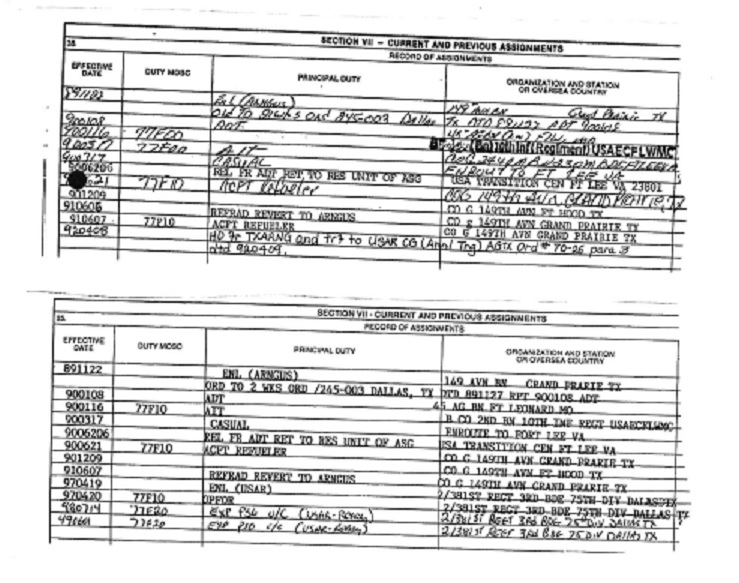 35. SECTION VII – CURRENT AND PREVIOUS ASSIGNMENTS
RECORD OF ASSIGNMENTS
EFFECTIVE DATE DUTY MOSC PRINCIPAL DUTY ORGANIZATION AND STATION OR OVERSEA COUNTRY
891122
Enl (ARNGUS) 149 AVN BN Grand Prairie TX
900108 Ord To 2wks Ord 245-003 Dallas TX DTD 891127 RPT 900108
900116 77F00 ADT
900317 77F00 AIT (Bn) 10th Inf (Regiment) USAECFLWMC
900717 CASUAL ENROUTE TO FT LEE VA
9006206 REL FR ADT RET TO RES UNIT OF ASG USA TRANSITION CEN FT LEE VA 23801
21 77F10 ACFT Refueler 149TH AVN GRAND PRAIRIE, TX
901209 CO G 149TH AVN FT HOOD TX
910606 REFRAD REVERT TO ARNGUS CO G 149TH AVN GRAND PRAIRIE TX
910607 77F10 ACFT REFUELER CO G 149TH AVN GRAND PRAIRIE TX
920408 HD fr TXARNG and trf to USAR CG (Anl Trg) AGTX Ord # 70-26 para 3
dtd 920409.
35. SECTION VII - CURRENT AND PREVIOUS ASSIGNMENTS
RECORD OF ASSIGNMENTS
EFFECTIVE DATE DUTY MOSC PRINCIPAL DUTY ORGANIZATION AND STATION OR OVERSEA COUNTRY
891122 ENL (ARNGUS) 149 AVN BN GRAND PRARIE TX
ORD TO 2 WKS ORD /245-003 DALLAS, TX DTD 891127 RPT 900108 ADT
900108 ADT 45 AG BN FT LEONARD MO
900116 77F10 AIT B CO 2ND BN 10TH INF REGT USAECFLWMC
900317 CASUAL ENROUTE TO FORT LEE VA
9006206 REL FR ADT RET TO RES UNIT OF ASG USA TRANSITION CEN FT LEE VA
900621 77F10 ACFT REFUELER CO G 149TH AVN GRAND PRARIE TX
901209 CO G 149TH AVN FT HOOD TX
910607 REFRAD REVERT TO ARNGUS CO G 149TH AVN GRAND PRARIE TX
970419 ENL (USAR) 2/381ST REGT 3RD BDE 75TH DIV DALLAS TX
970420 77F10 OPFOR 2/381ST REGT 3RD BDE 75TH DIV DALLAS TX
980714 77F20 EXP PSG U/C (USAR- 2/381ST REGT 3RD BDE 75TH DIV DALLAS TX
77F20 EXP (USAR- 2/381ST REGT 3RD BDE 75 DIV DALLAS TX